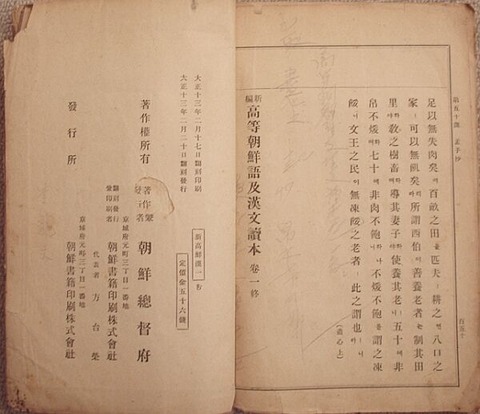 第五十課 孟子抄
百五十
足以無失肉矣며百畝之田을匹夫ㅣ耕之면八口之
家ㅣ可以無飢矣리라所謂西伯이善養老者는制其田
里하야敎之樹畜하며導其妻子하야使養其老ㅣ니五十에非
帛不煖하며七十에非肉不飽하나니不煖不飽를謂之凍
餒니文王之民이無凍餒之老者ㅣ此之謂也ㅣ니라(盡心上)
新編 高等朝鮮語及漢文讀本 卷一終
大正十三年二月十七日翻刻印刷
大正十三年二月二十日翻刻發行
新高鮮漢一
定價金五十六錢
著作權所有 著作兼發行者 朝鮮總督府
京城府元町三丁目一番地
翻刻發行兼印刷者 朝鮮書籍印刷株式會社
代表者 方台榮
京城府元町三丁目一番地
發行所 朝鮮書籍印刷株式會社